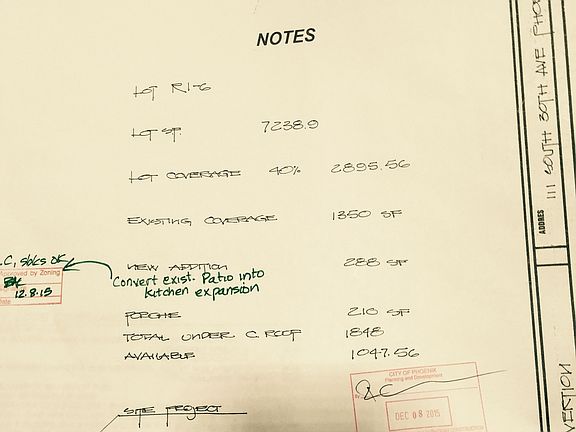 NOTES
LOT R1-6
LOT SF. 7238.9
LOT COVERAGE 40% 2895.56
EXISTING COVERAGE 1350 SF
.C, sbks OK
NEW ADDITION 288 SF
Approved by Zoning
Convert exist. Patio into
kitchen expansion
12.8.15
Date
PORCHE 210 SF
TOTAL UNDER C. ROOF 1848
AVAILABLE 1047.56
CITY OF PHOENIX
Planning and Development
By
DEC 08 2015
SITE PROJECT
ADDRES 111 SOUTH 30TH AVE PHO
VENTION